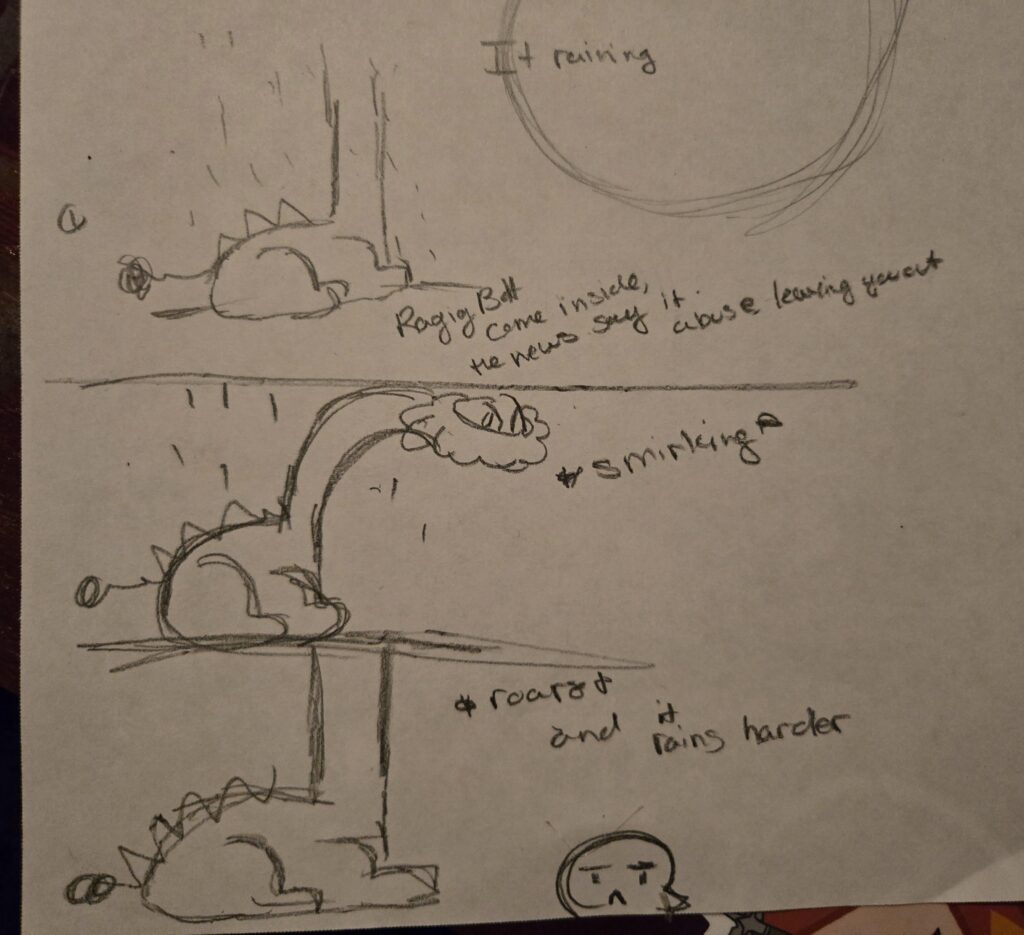 It raining
Ragig Bolt
come inside,
the news say it
abuse leaving you out
*smirking*
*roars*
and it
rains harder